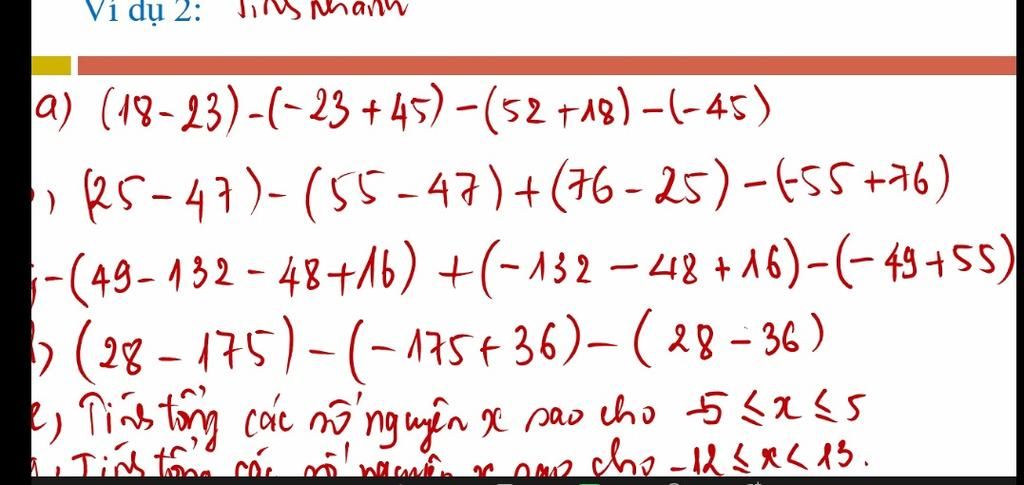 Ví dụ 2: Tính nhanh
a) (18-23)-(-23+45)-(52+18)-(-45)
) (25-47)-(55-47)+(76-25)-(-55+76)
-(49-132-48+16)+(-132-48+16)-(-49+55)
) (28-175)-(-175+36)-(28-36)
e) Tính tổng các số nguyên x sao cho -5≤x≤5
Tính tổng các số nguyên x sao cho -12≤x<13.